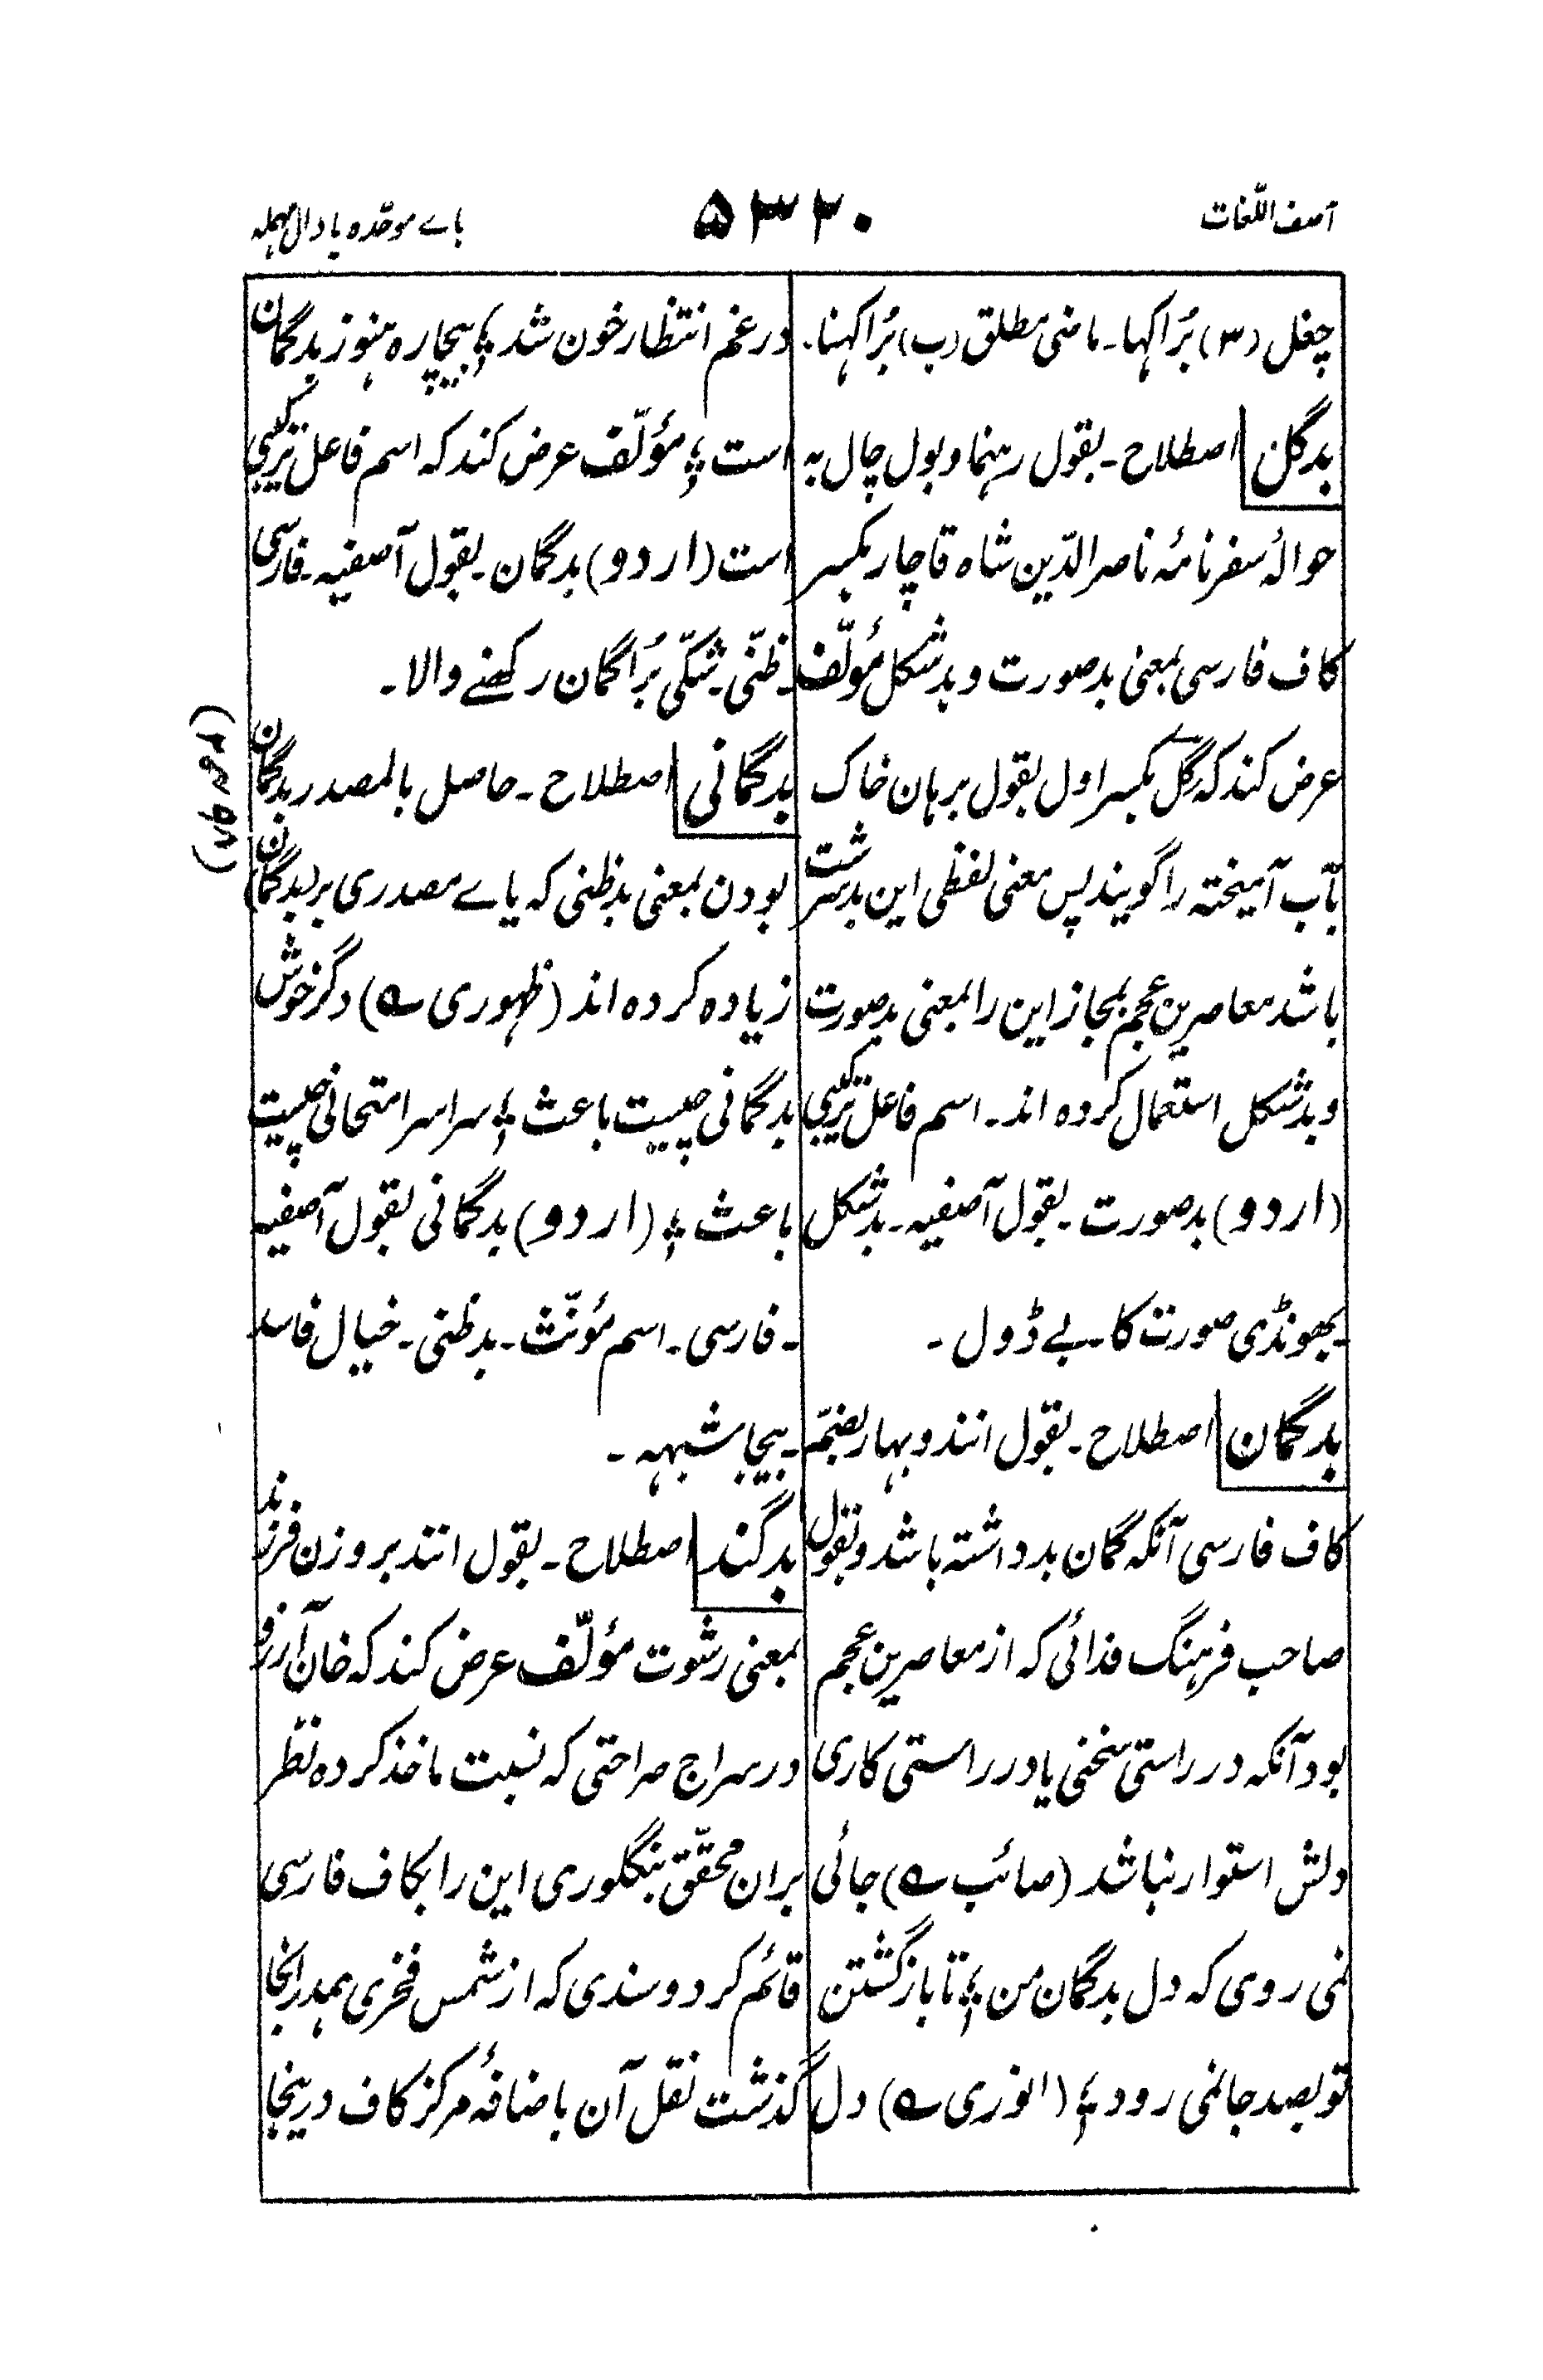 آصف اللّغات
۵۳۲۰
باے موحّدہ با دال مہملہ
چغل (۳) بُرا کہا۔ ماضی مطلق (ب) بُرا کہنا۔
بدگل اصطلاح۔ بقول رہنما و بول چال بہ
حوالۂ سفرنامۂ ناصر الدّین شاہ قاچار بکسر
کاف فارسی بمعنی بدصورت و بدشکل مُولّف
عرض کند کہ گل بکسر اول بقول برہان خاک
بآب آمیختہ را گویند پس معنی لفظی این بدسرشت
باشد معاصرین عجم بمجاز این را بمعنی بدصورت
و بدشکل استعمال کردہ اند۔ اسم فاعل ترکیبی
(اردو) بدصورت۔ بقول آصفیہ۔ بدشکل
۔ بھونڈی صورت کا۔ بے ڈول۔
بدگمان اصطلاح۔ بقول انند و بہار بضمّہ
کاف فارسی آنکہ گمان بد داشتہ باشد و بقول
صاحب فرہنگ فدائی کہ از معاصرین عجم
بود آنکہ در راستی سخنی یا در راستی کاری
دلش استوار نباشد (صائب ؎) جائی
نمی روی کہ دل بدگمان من ؛ تا بازگشتن
تو بصد جا نمی رود ؛ (انوری ؎) دل
در غم انتظار خون شد ؛ بیچارہ ہنوز بدگمان
است ؛ مؤلّف عرض کند کہ اسم فاعل ترکیبی
است (اردو) بدگمان۔ بقول آصفیہ۔ فارسی
۔ ظنّی۔ شکّی بُرا گمان رکھنے والا۔
بدگمانی اصطلاح۔ حاصل بالمصدر بدگمان
بودن بمعنی بدظنی کہ یاے مصدری بر (بدگمان)
زیادہ کردہ اند (ظہوری ؎) دگر خوش
بدگمانی چیست باعث ؛ سراسر امتحانی چیست
باعث ؛ (اردو) بدگمانی بقول آصفیہ
۔ فارسی۔ اسم مُونّث۔ بدظنی۔ خیال فاسد
۔ بیجا شبہہ۔
بدگند اصطلاح۔ بقول انند بر وزن فرزند
بمعنی رشوت مؤلّف عرض کند کہ خان آرزو
در سراج صراحتی کہ نسبت ماخذ کردہ نظر
بران محقّق بنگلوری این را بکاف فارسی
قائم کرد و سندی کہ از شمس فخری ہمدرانجا
گذشت نقل آن باضافۂ مرکز کاف درینجا